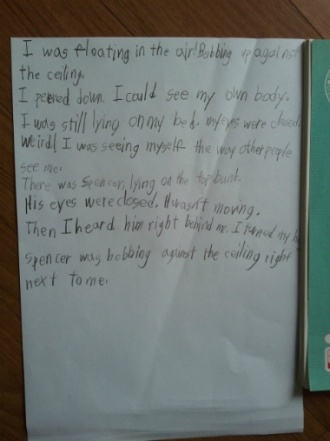 I was floating in the air! Bobbing up against
the ceiling.
I peered down. I could see my own body.
I was still lying on my bed. my eyes were closed.
Weird! I was seeing myself the way other people
see me.
There was spencer, lying on the top bunk.
His eyes were closed. He wasn't moving.
Then I heard him right behind me. I turned my
spencer was bobbing against the ceiling right
next to me.